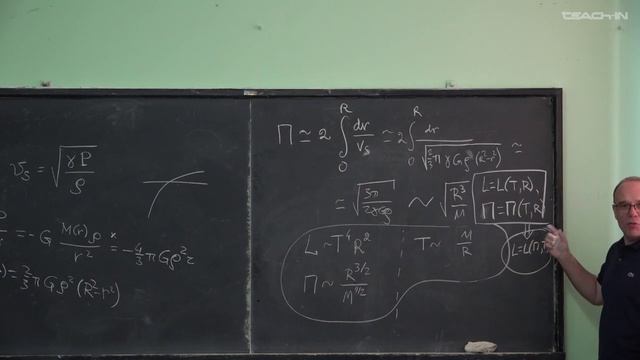 TEACH-IN
v_s = √(γP/ρ)
= -G M(r)ρ/r² = -4/3 πGρ²r
= 2/3 πGρ²(R²-r²)
Π ≃ 2 ∫₀ᴿ dr/v_s ≃ 2 ∫₀ᴿ dr/√(⅔πγGρ(R²-r²)) ≃
≃ √(3π/2γGρ) ~ √(R³/M)
L=L(T,R),
Π=Π(T,R)
L ~ T⁴R²
T ~ M/R
L=L(Π,T)
Π ~ R^{3/2}/M^{1/2}